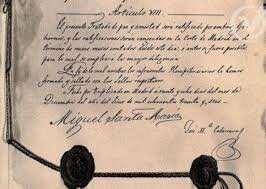 Artículo VIII.
El presente Tratado de paz y amistad será ratificado por ambos Go-
biernos, y las ratificaciones serán canjeadas en la Corte de Madrid en el
término de nueve meses contados desde este día, o antes si fuere posible,
para lo cual se emplearán la mayor diligencia.
En fe de lo cual nosotros los infrascritos Plenipotenciarios lo hemos
firmado y sellado con los sellos respectivos.
Fecho por duplicado en Madrid a veinte y ocho días del mes de
Diciembre del año del Señor de mil ochocientos treinta y seis.
Miguel Santa María
José M.ª Calatrava